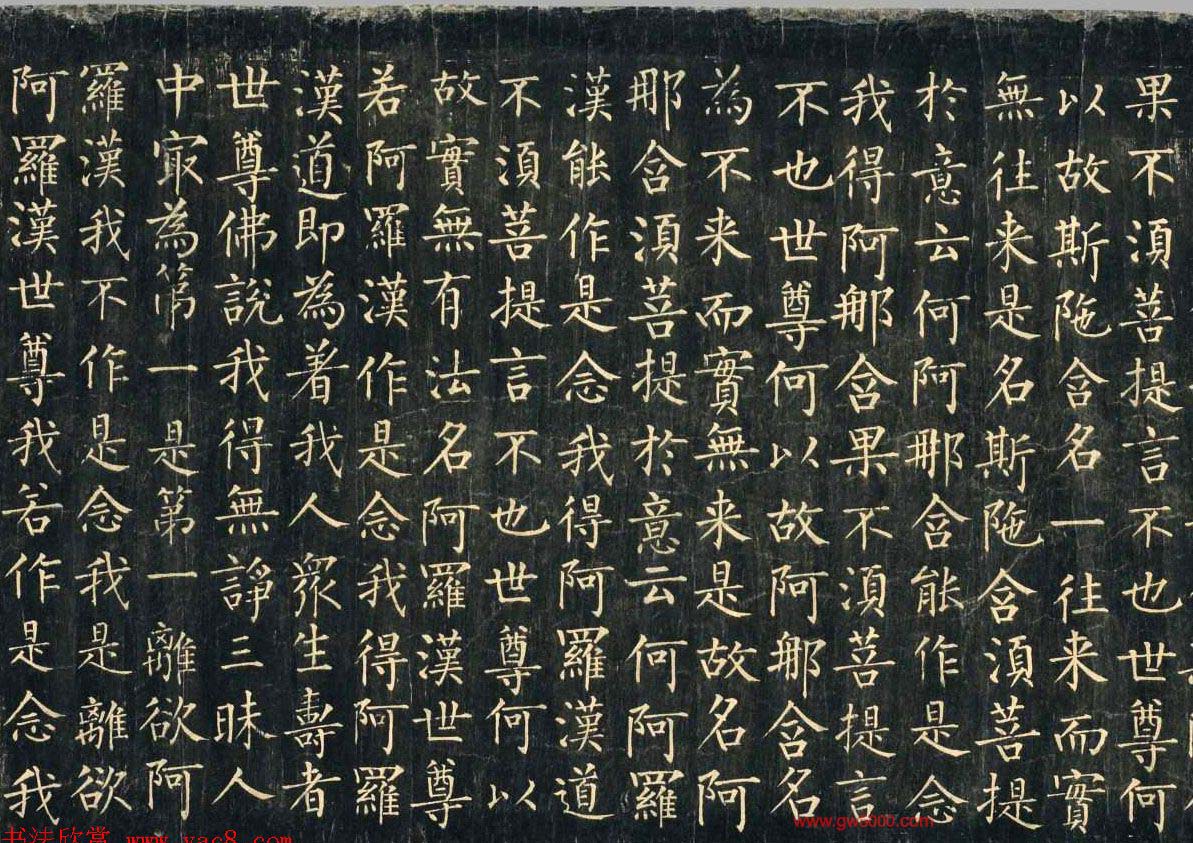 果不湏菩提言不也世尊何
以故斯陁含名一往来而實
無往来是名斯陁含湏菩提
於意云何阿那含能作是念
我得阿那含果不湏菩提言
不也世尊何以故阿那含名
為不来而實無来是故名阿
那含湏菩提於意云何阿羅
漢能作是念我得阿羅漢道
不湏菩提言不也世尊何以
故實無有法名阿羅漢世尊
若阿羅漢作是念我得阿羅
漢道即為着我人衆生壽者
世尊佛說我得無諍三昧人
中冣為第一是第一離欲阿
羅漢我不作是念我是離欲
阿羅漢世尊我若作是念我
书法欣赏 www.yac8.com